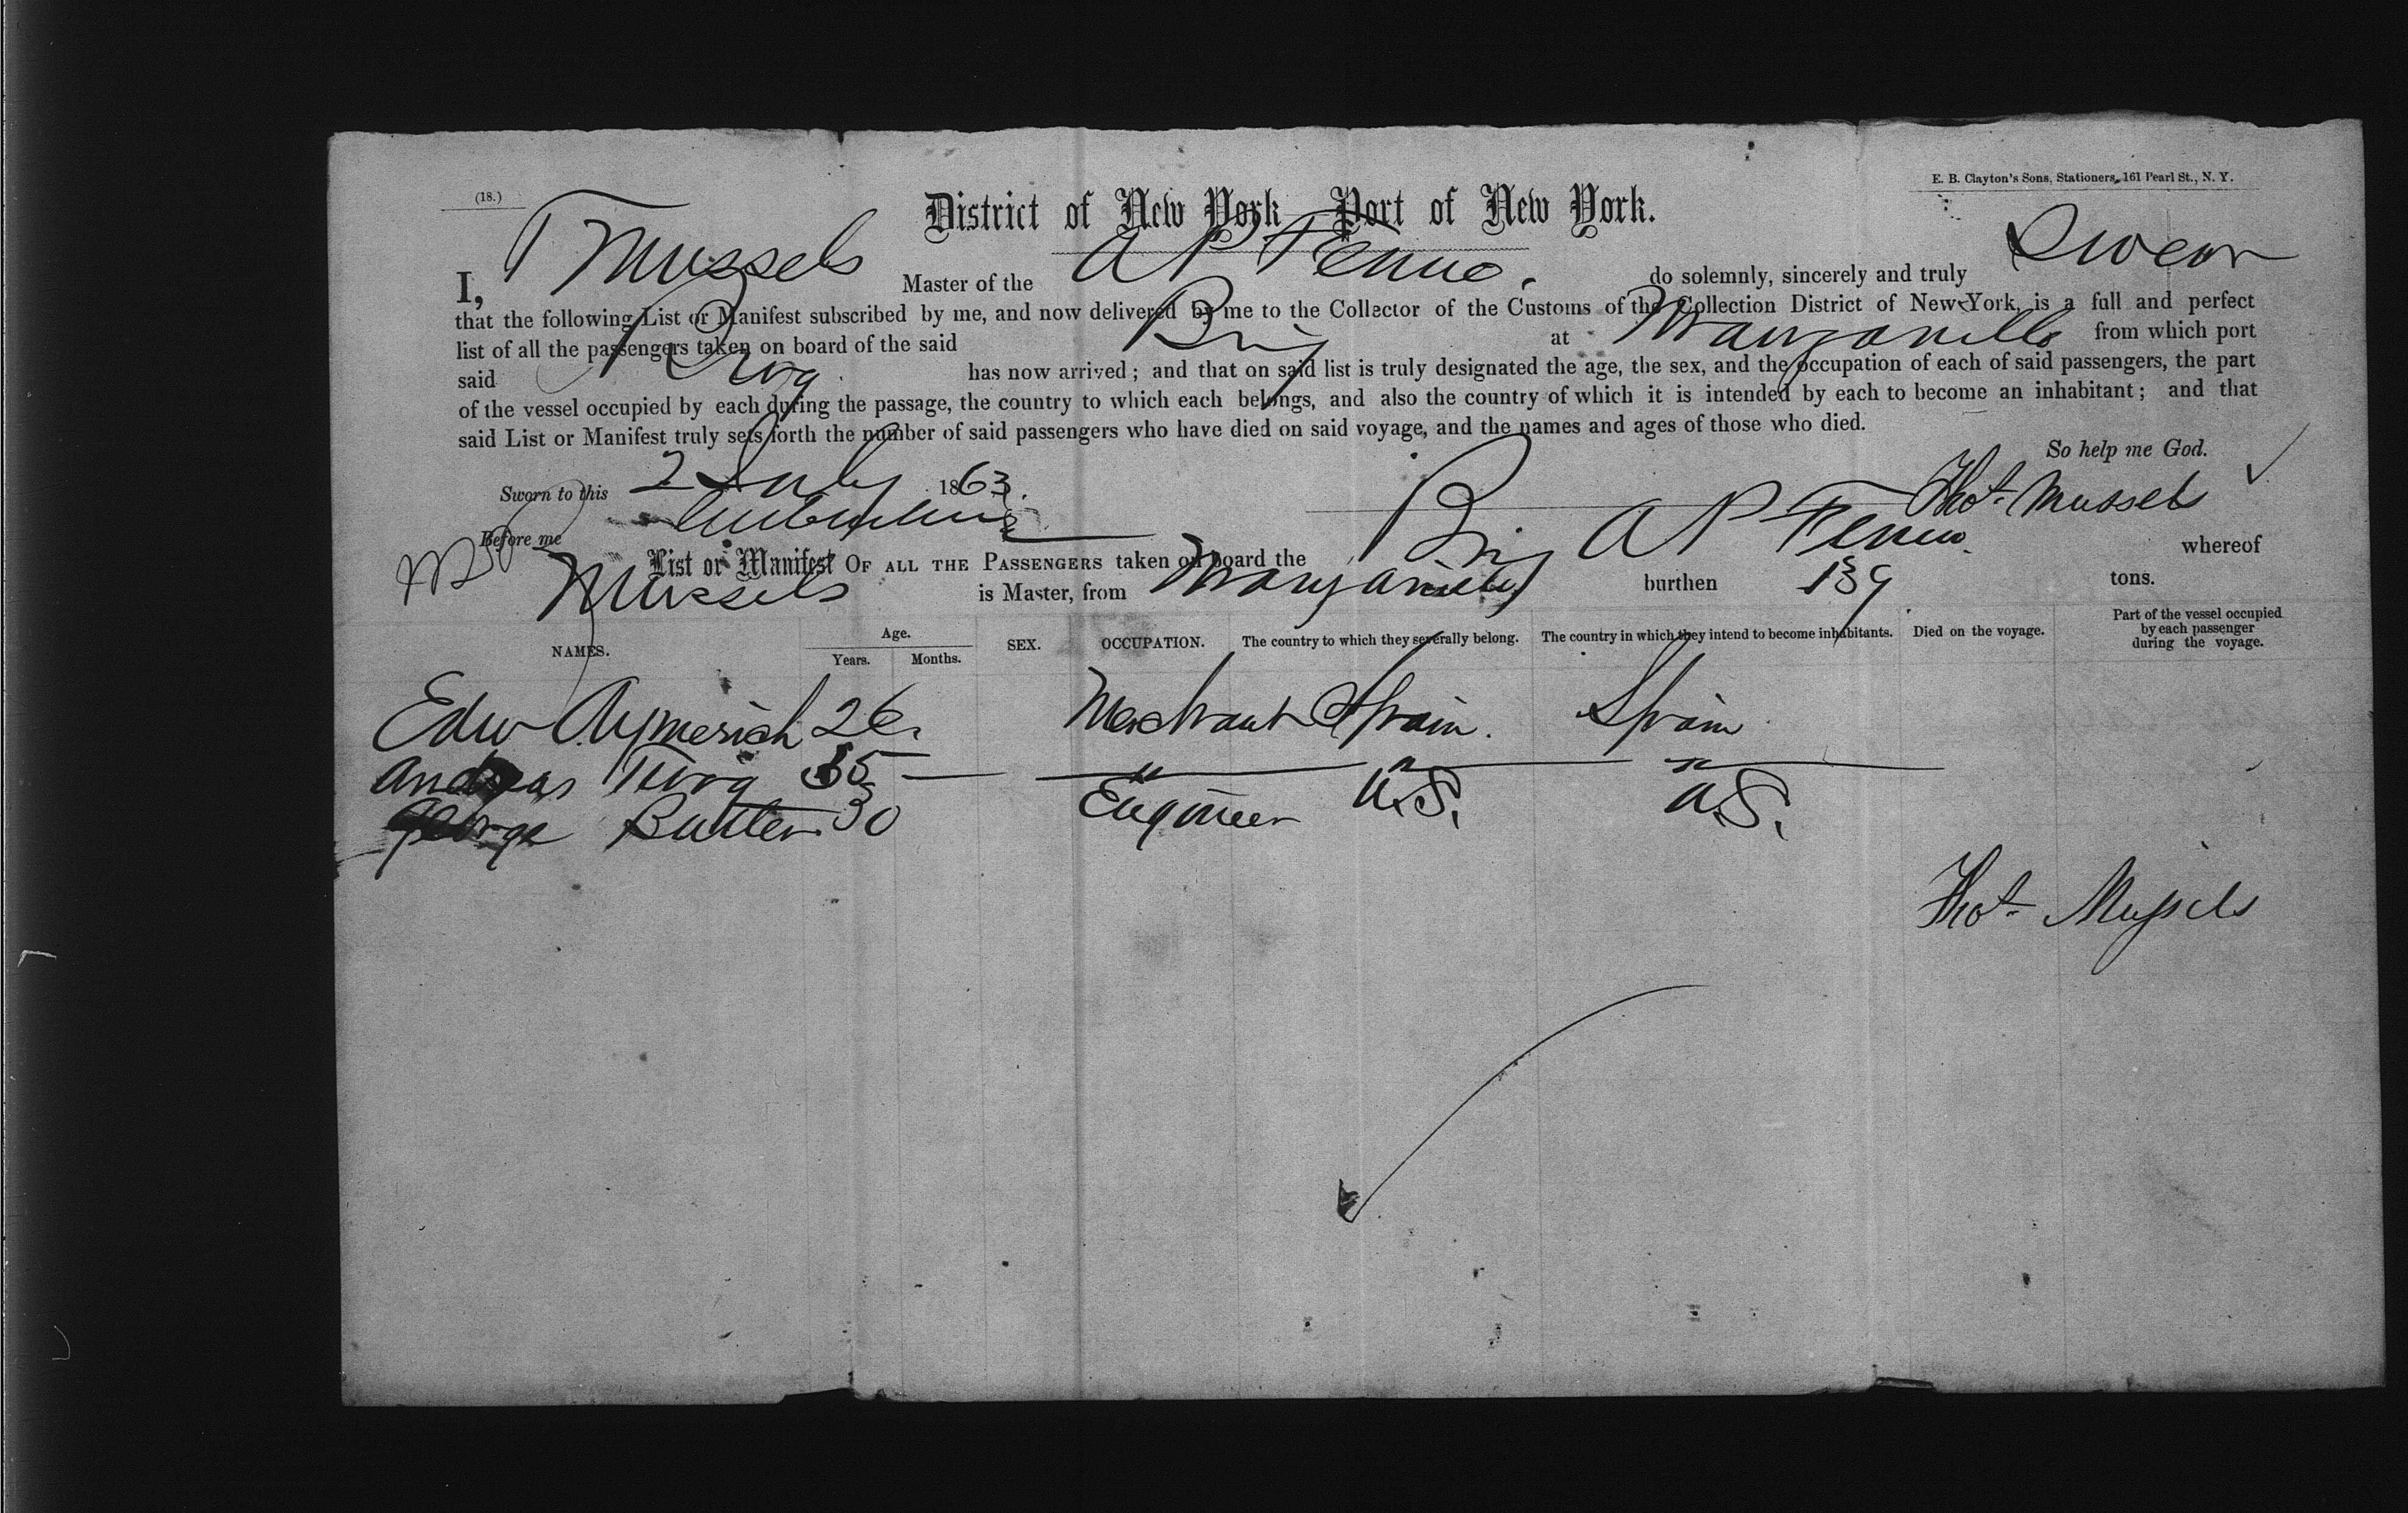 (18.)
E. B. Clayton's Sons, Stationers, 161 Pearl St., N. Y.
District of New York Port of New York.
I, T Mussels Master of the A P Fenno. do solemnly, sincerely and truly Swear
that the following List or Manifest subscribed by me, and now delivered by me to the Collector of the Customs of the Collection District of New-York, is a full and perfect
list of all the passengers taken on board of the said Brig at Manzanillo from which port
said Brig has now arrived; and that on said list is truly designated the age, the sex, and the occupation of each of said passengers, the part
of the vessel occupied by each during the passage, the country to which each belongs, and also the country of which it is intended by each to become an inhabitant; and that
said List or Manifest truly sets forth the number of said passengers who have died on said voyage, and the names and ages of those who died.
So help me God.
Sworn to this 2 July 1863. Thos. Mussels
Before me
List or Manifest OF ALL THE PASSENGERS taken on board the Brig A P Fenno whereof
Mussels is Master, from Manzanillo burthen 139 tons.
NAMES. Age. Years. Months. SEX. OCCUPATION. The country to which they severally belong. The country in which they intend to become inhabitants. Died on the voyage. Part of the vessel occupied by each passenger during the voyage.
Edw Aymerich 26. Merchant Spain. Spain
Andreas 35 — " " "
George Butler 30 Engineer U.S. U.S.
Thos. Mussels